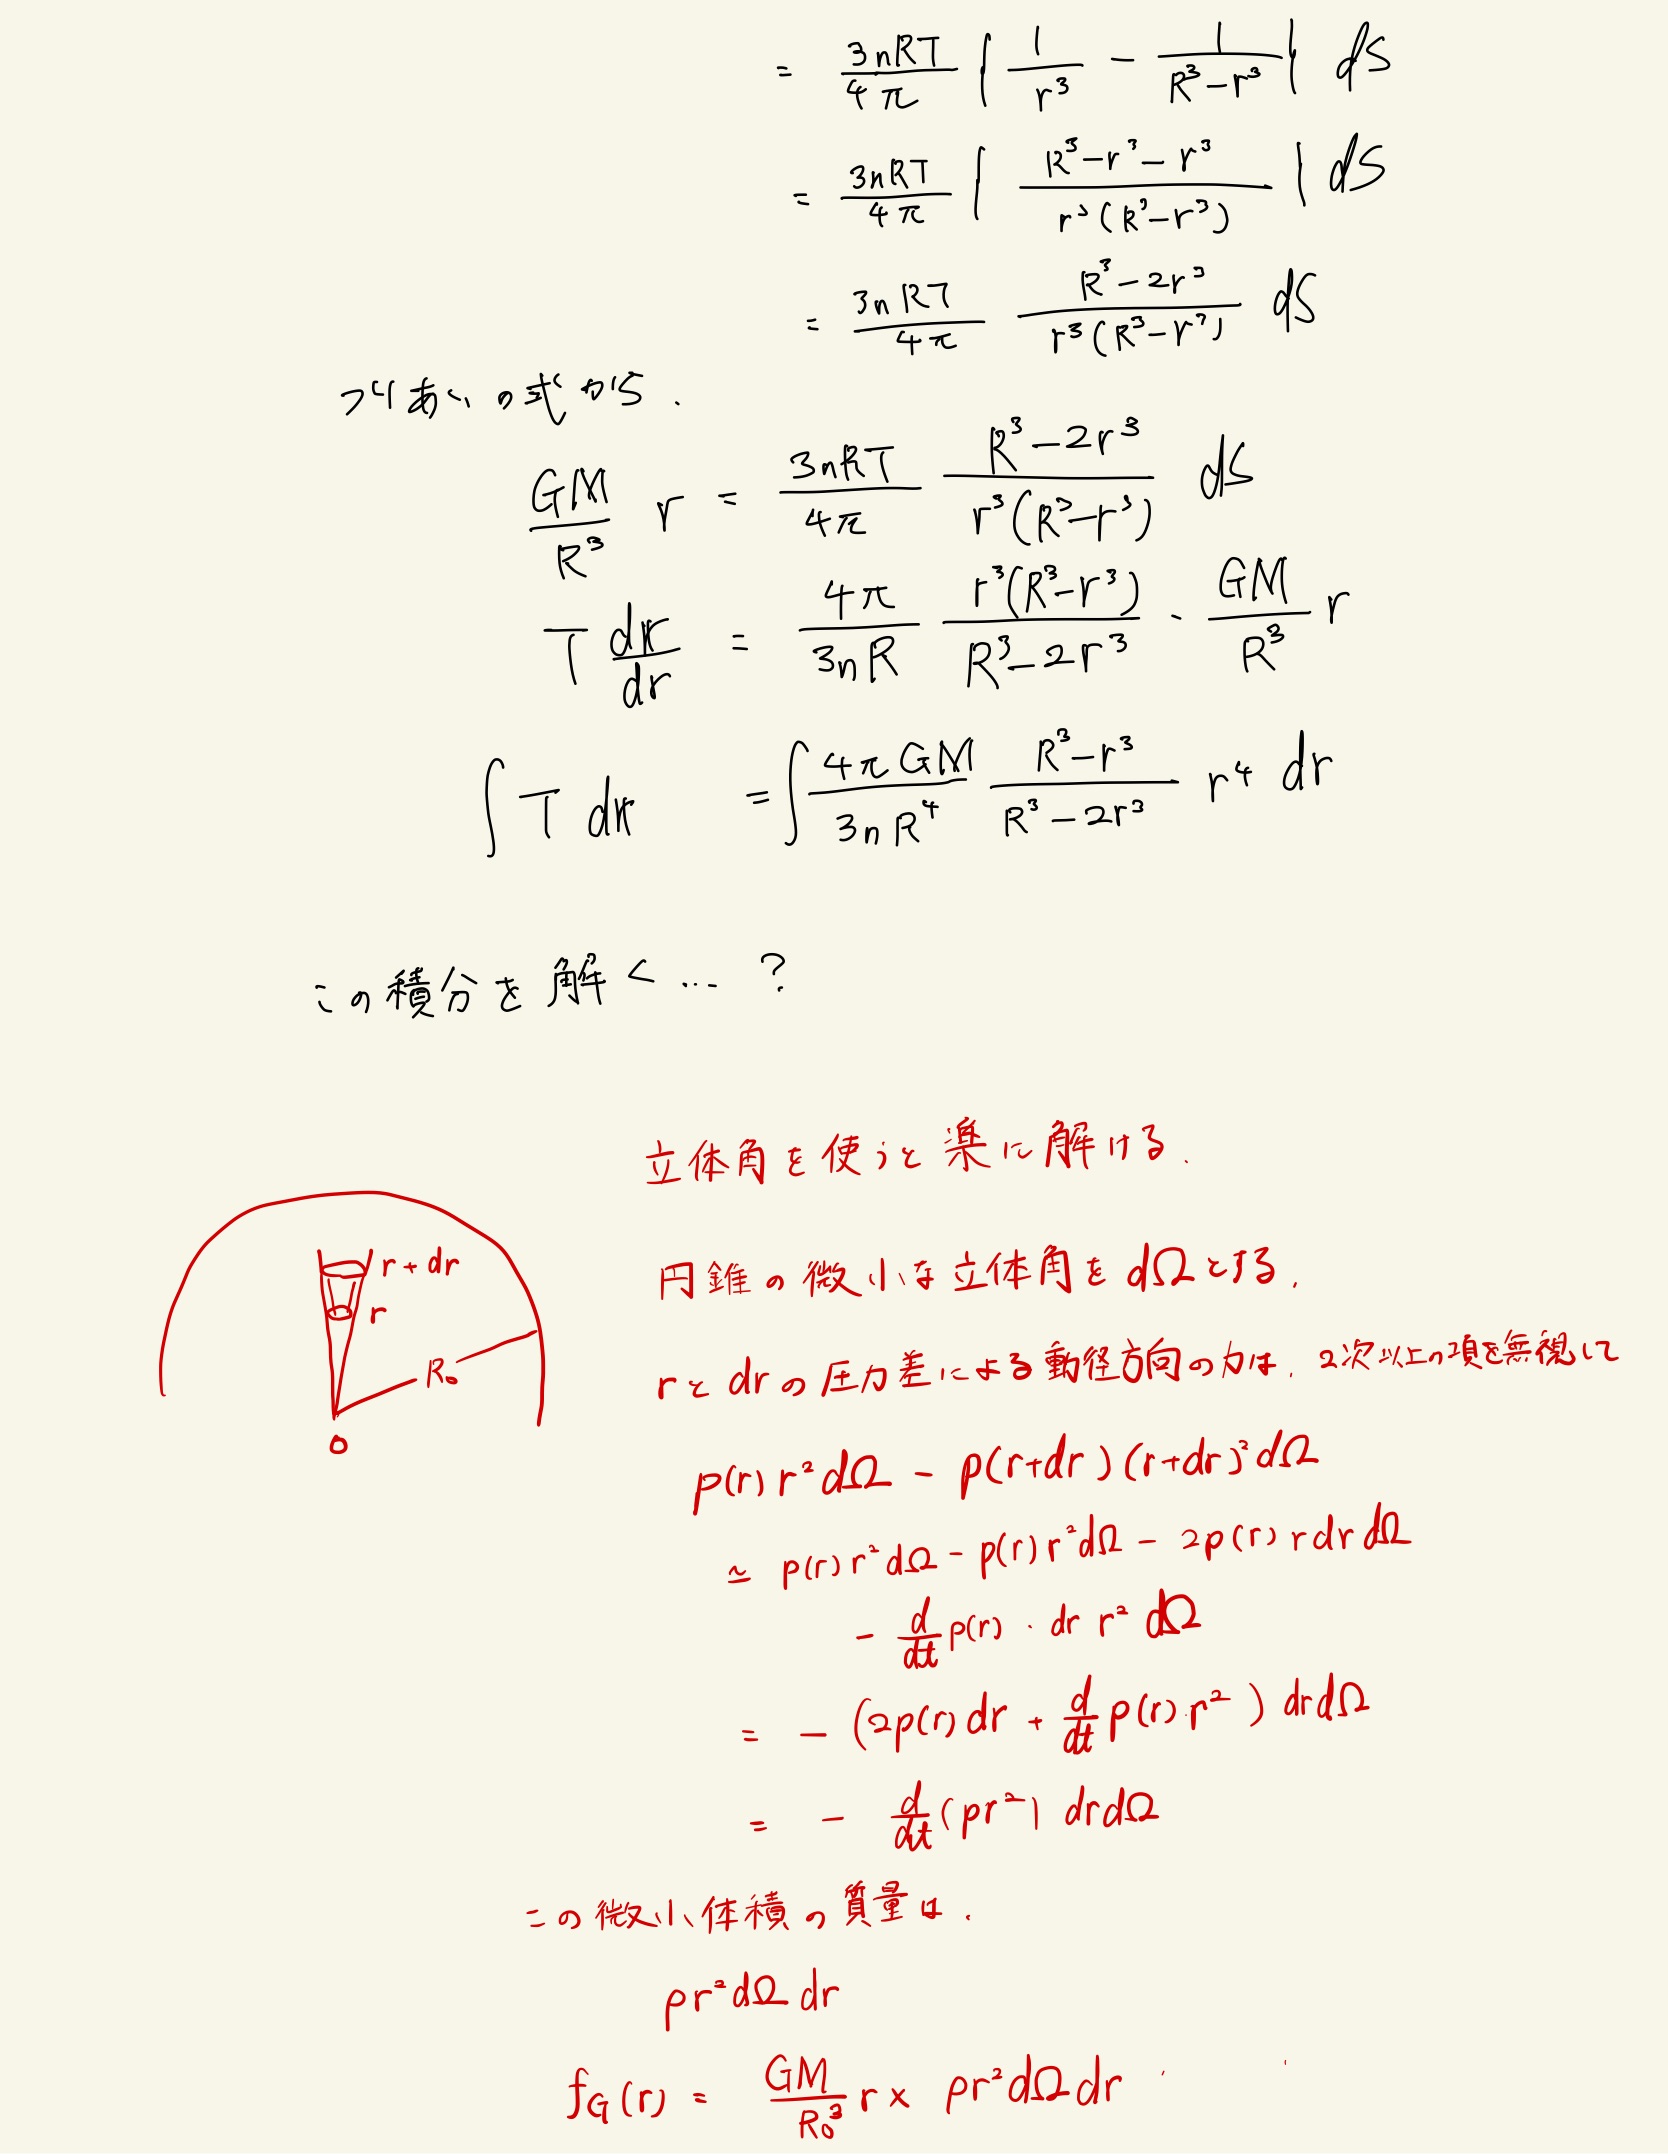 = 3nRT/4π | 1/r³ − 1/R³−r³ | dS
= 3nRT/4π | R³−r³−r³/r³(R³−r³) | dS
= 3nRT/4π R³−2r³/r³(R³−r³) dS
つりあいの式から.
GM/R³ r = 3nRT/4π R³−2r³/r³(R³−r³) dS
T dr/dr = 4π/3nR r³(R³−r³)/R³−2r³ · GM/R³ r
∫ T dr = ∫ 4πGM/3nR⁴ R³−r³/R³−2r³ r⁴ dr
この積分を解く… ?
立体角を使うと楽に解ける.
r + dr
r
R₀
O
円錐の微小な立体角をdΩとする.
rとdrの圧力差による動径方向の力は, 2次以上の項を無視して
p(r) r²dΩ − p(r+dr)(r+dr)²dΩ
≃ p(r) r²dΩ − p(r) r²dΩ − 2p(r) r dr dΩ
− d/dt p(r) · dr r² dΩ
= − (2p(r)dr + d/dt p(r)·r²) drdΩ
= − d/dt (pr²) drdΩ
この微小体積の質量は,
ρr²dΩ dr
f_G(r) = GM/R₀³ r × ρr²dΩdr